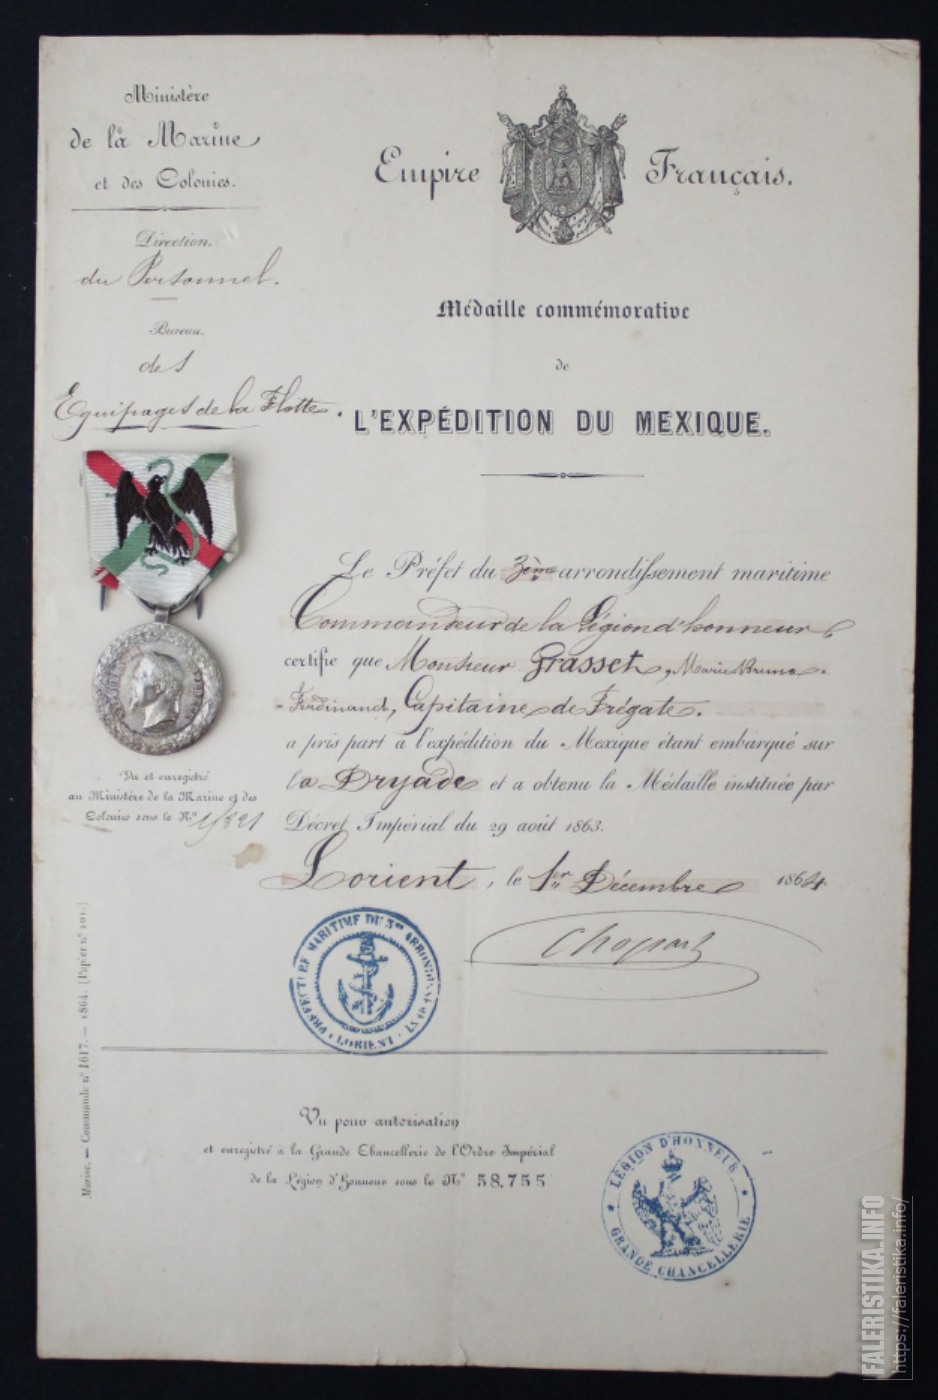 Ministère
de la Marine
et des Colonies.
Direction.
du Personnel.
Bureau.
des
Equipages de la Flotte.
Empire Français.
Médaille commémorative
de
L'EXPÉDITION DU MEXIQUE.
Le Préfet du 3ème arrondissement maritime
Commandeur de la Légion d'honneur
certifie que Monsieur Grasset, Marie Bruno
Ferdinand, Capitaine de Frégate.
a pris part à l'expédition du Mexique étant embarqué sur
la Dryade et a obtenu la Médaille instituée par
Décret Impérial du 29 août 1863.
Lorient, le 1er Décembre 1864
Vu et enregistré
au Ministère de la Marine et des
Colonies sous le No
Chopart
PREFECTURE MARITIME DU 3me ARRONDISSEMENT
LORIENT
Marine. — Commande no 1617. — 1864. (Papier no 101.)
Vu pour autorisation
et enregistré à la Grande Chancellerie de l'Ordre Impérial
de la Légion d'honneur sous le No 58.755
LÉGION D'HONNEUR
GRANDE CHANCELLERIE
FALERISTIKA.INFO
https://faleristika.info/